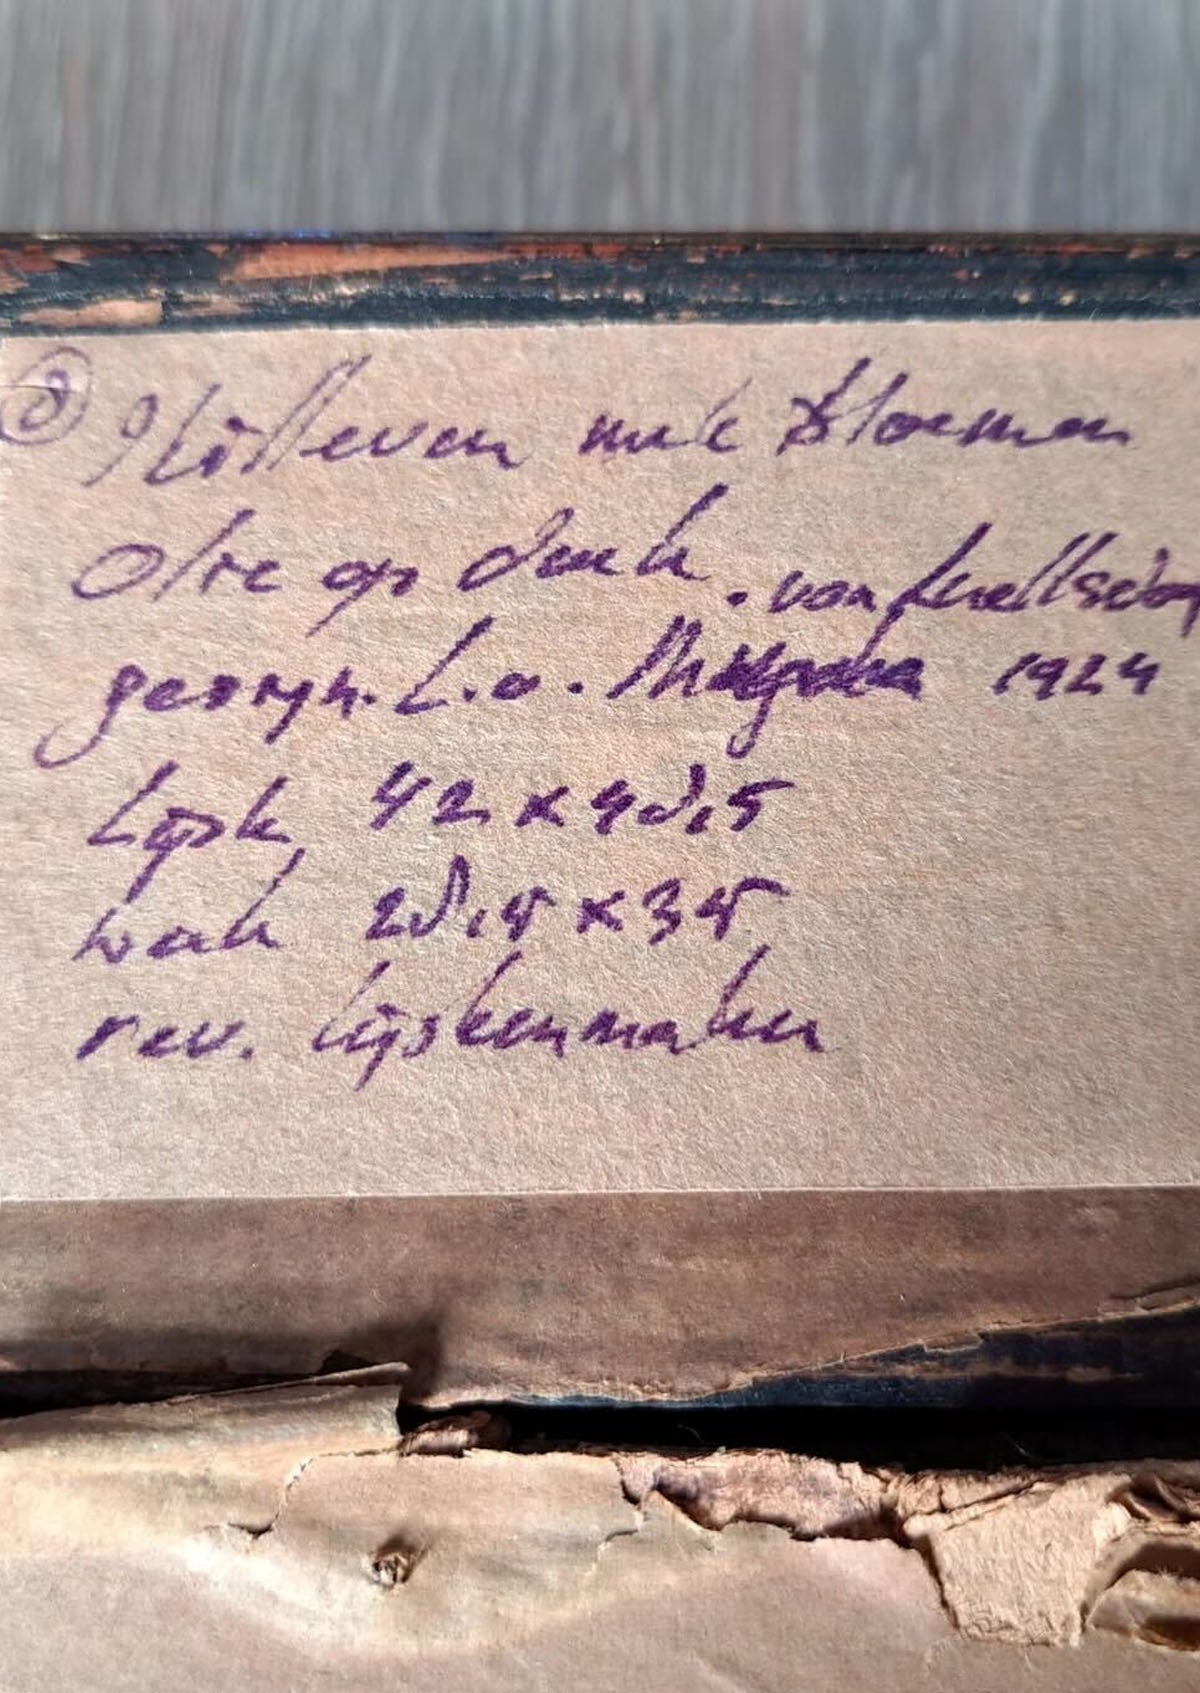 8 Stilleven met Bloemen
Olie op doek. van
gesign. L.o. 1924
Lijst 42 x 48,5
werk 28,5 x 35
rev. lijstenmaker